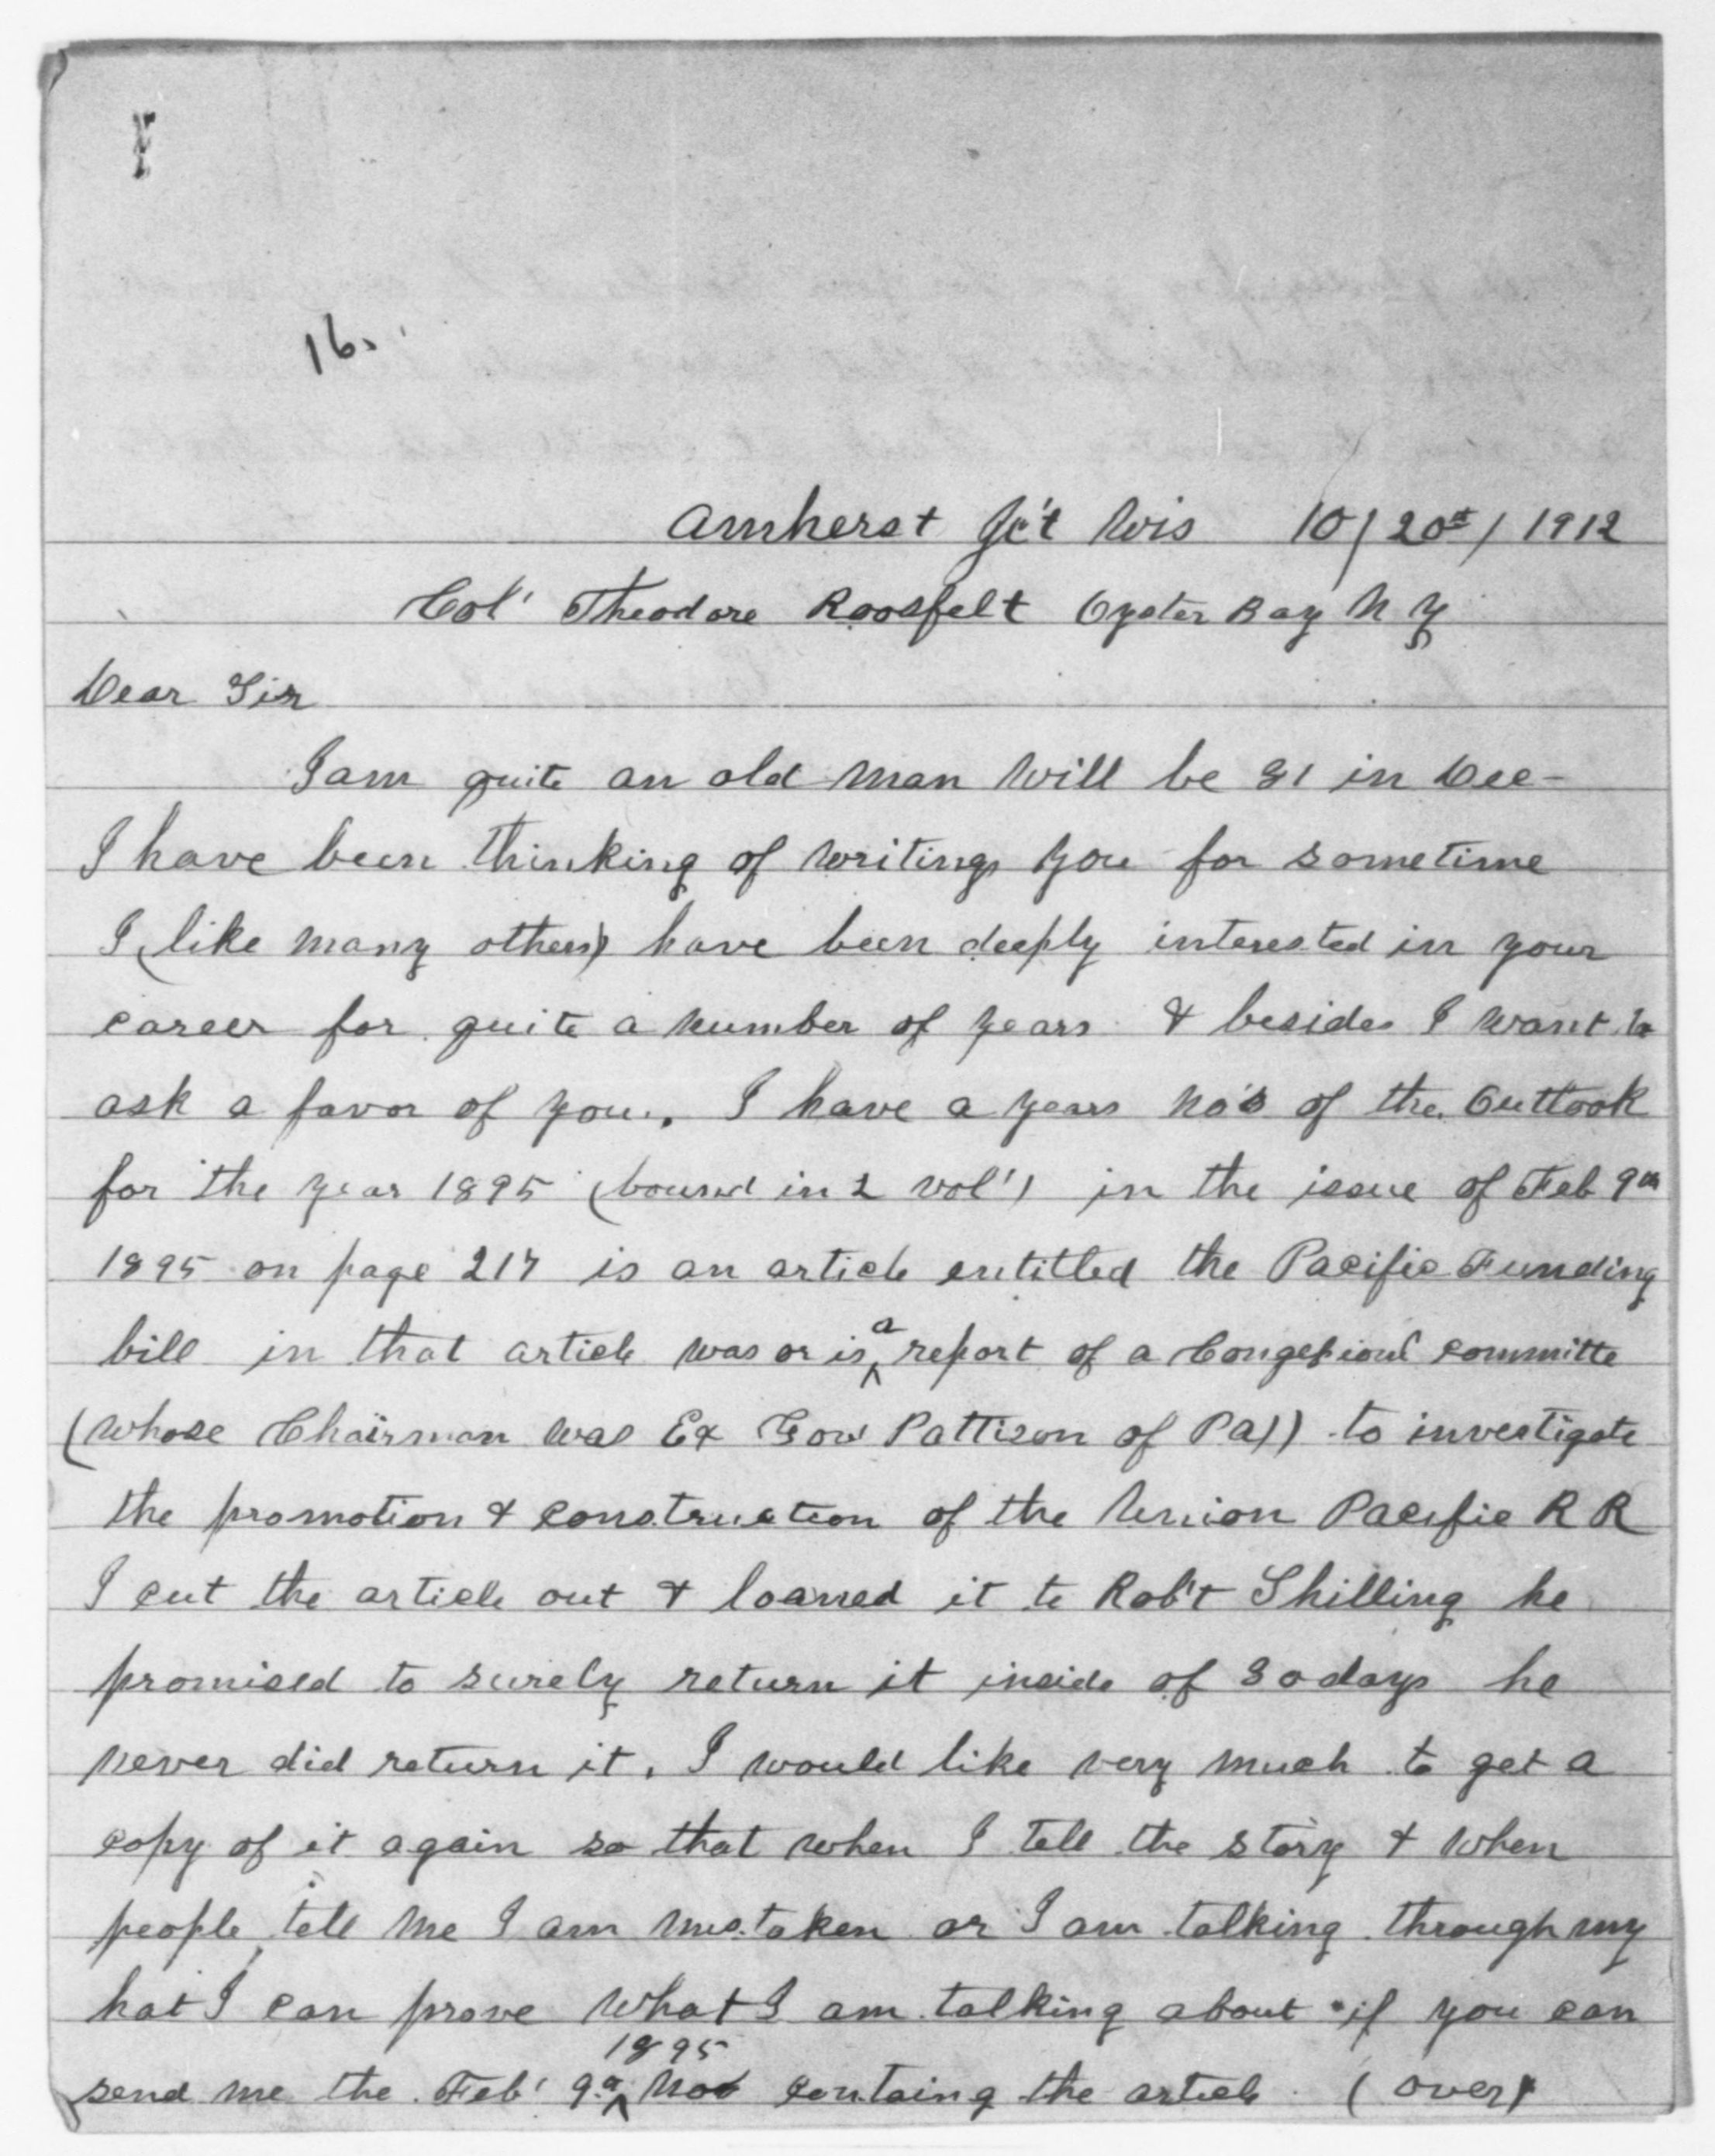 16.
Amherst Jc't Wis 10/20th/1912
Col' Theodore Roosfelt Oyster Bay N Y
Dear Sir
I am quite an old man will be 81 in Dec-
I have been thinking of writing you for sometime
I (like many others) have been deeply interested in your
career for quite a number of years & besides I want to
ask a favor of you. I have a years no's of the Outlook
for the year 1895 (bound in 2 vol') in the issue of Feb 9th
1895 on page 217 is an article entitled the Pacific Funding
bill in that article was or is a report of a Congessionl committe
(whose Chairman was Ex Gov Pattison of Pa)) to investigate
the promotion & construction of the Union Pacific R R
I cut the article out & loaned it to Rob't Shilling he
promised to surely return it inside of 30 days he
never did return it. I would like very much to get a
copy of it again so that when I tell the story & when
people tell me I am mistaken or I am talking through my
hat I can prove what I am talking about if you can
send me the Feb' 9th 1895 No containg the article (over)